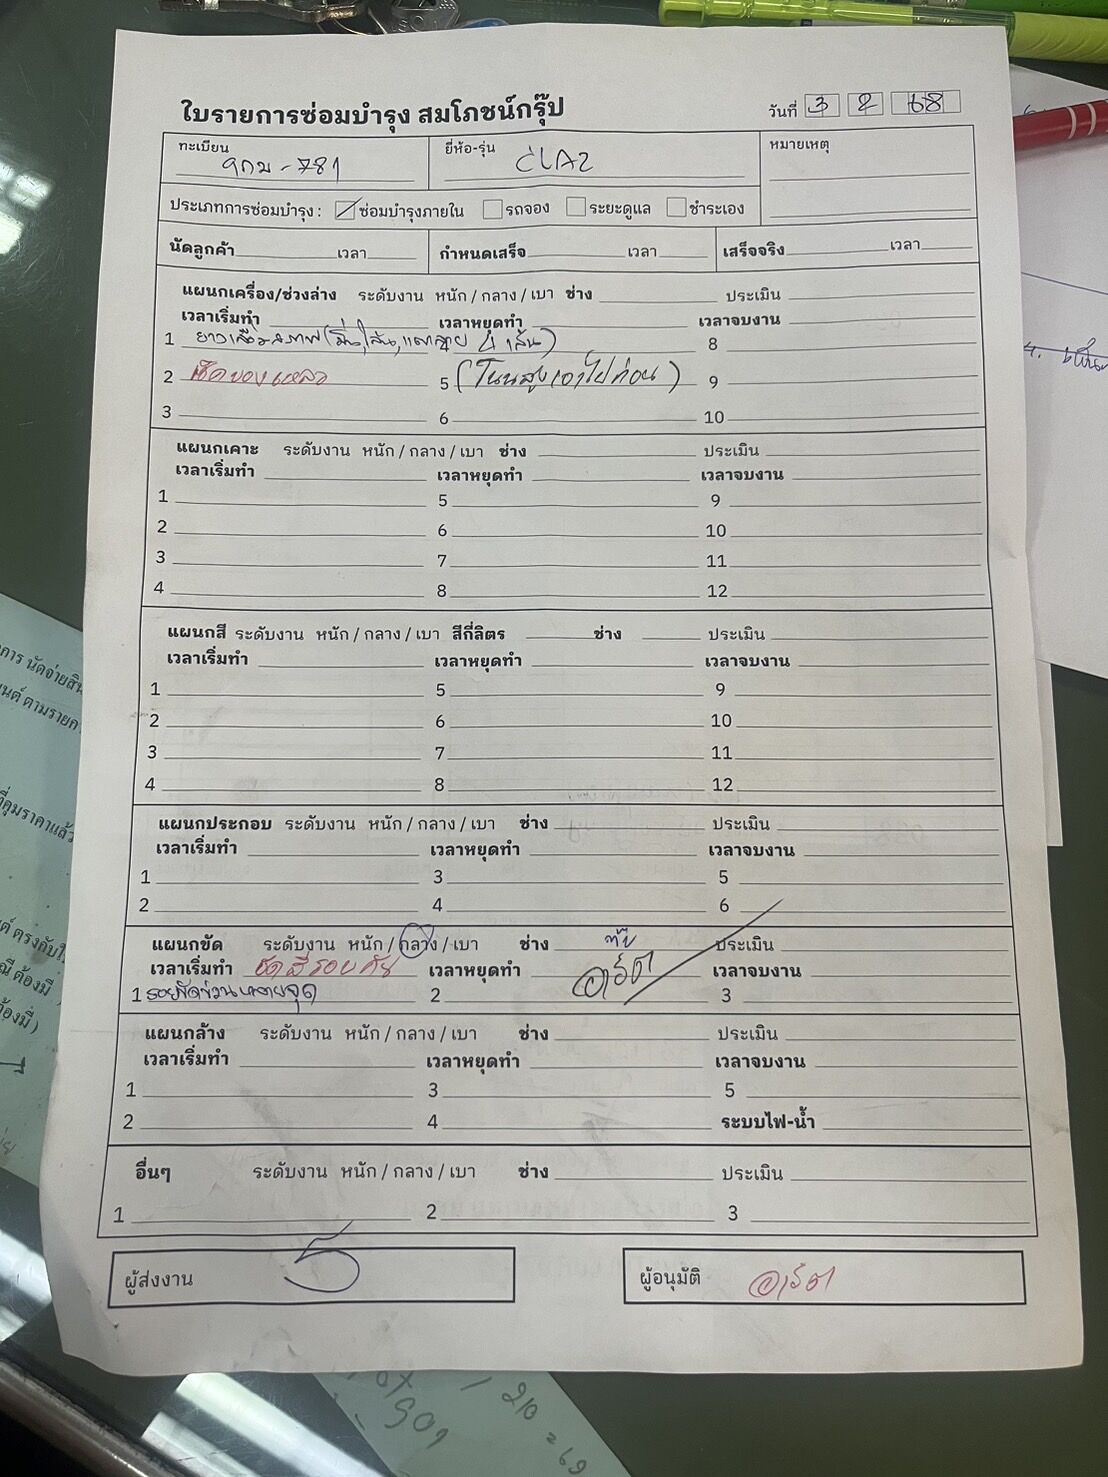 ใบรายการซ่อมบำรุง สมโภชน์กรุ๊ป
วันที่ 3 2 68
ทะเบียน 9กข-781
ยี่ห้อ-รุ่น CLA2
หมายเหตุ
ประเภทการซ่อมบำรุง : ซ่อมบำรุงภายใน รถจอง ระยะดูแล ชำระเอง
นัดลูกค้า เวลา กำหนดเสร็จ เวลา เสร็จจริง เวลา
แผนกเครื่อง/ช่วงล่าง ระดับงาน หนัก / กลาง / เบา ช่าง ประเมิน
เวลาเริ่มทำ เวลาหยุดทำ เวลาจบงาน
1 ยางเสื่อมสภาพ 4 เส้น) 8
2 เช็คของเหลว 5 (โนนสูงเอาไปก่อน) 9
3 6 10
แผนกเคาะ ระดับงาน หนัก / กลาง / เบา ช่าง ประเมิน
เวลาเริ่มทำ เวลาหยุดทำ เวลาจบงาน
1 5 9
2 6 10
3 7 11
4 8 12
แผนกสี ระดับงาน หนัก / กลาง / เบา สีกี่ลิตร ช่าง ประเมิน
เวลาเริ่มทำ เวลาหยุดทำ เวลาจบงาน
1 5 9
2 6 10
3 7 11
4 8 12
แผนกประกอบ ระดับงาน หนัก / กลาง / เบา ช่าง ประเมิน
เวลาเริ่มทำ เวลาหยุดทำ เวลาจบงาน
1 3 5
2 4 6
แผนกขัด ระดับงาน หนัก / กลาง / เบา ช่าง ประเมิน
เวลาเริ่มทำ ขัดสีรอบคัน เวลาหยุดทำ อาร์ต เวลาจบงาน
1 รอยขีดข่วนหลายจุด 2 3
แผนกล้าง ระดับงาน หนัก / กลาง / เบา ช่าง ประเมิน
เวลาเริ่มทำ เวลาหยุดทำ เวลาจบงาน
1 3 5
2 4 ระบบไฟ-น้ำ
อื่นๆ ระดับงาน หนัก / กลาง / เบา ช่าง ประเมิน
1 2 3
ผู้ส่งงาน
ผู้อนุมัติ อาร์ต